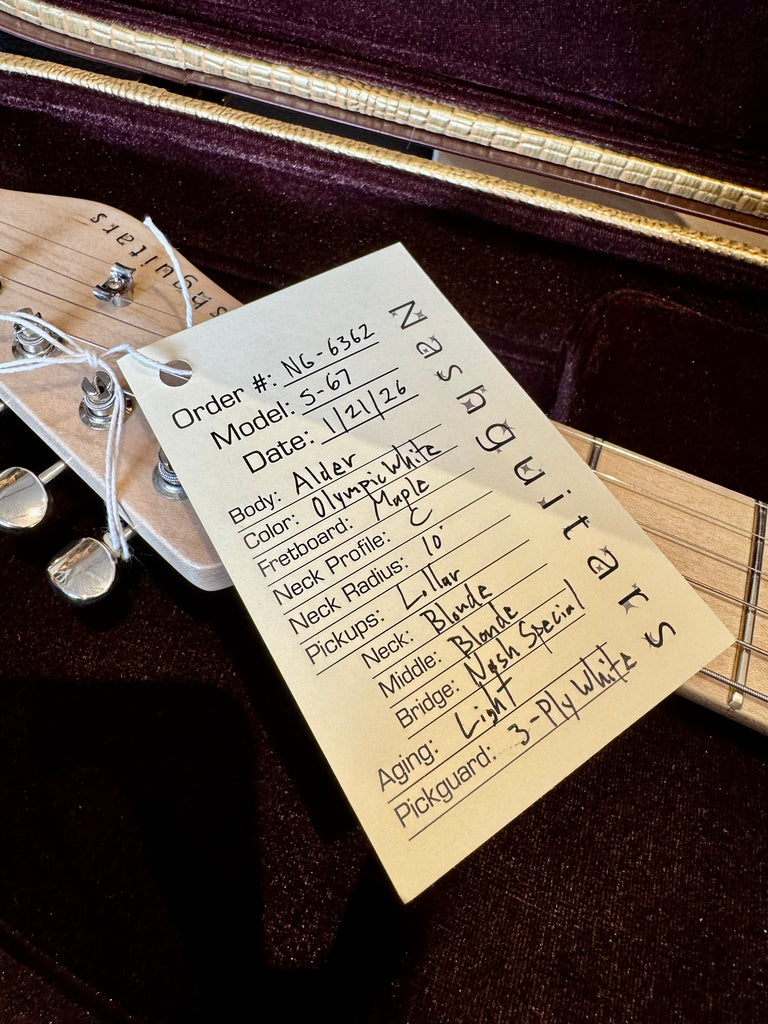 shguitars
Nashguitars
Order #: NG-6362
Model: S-67
Date: 1/21/26
Body: Alder
Color: Olympic White
Fretboard: Maple
Neck Profile: C
Neck Radius: 10"
Pickups: Lollar
Neck: Blonde
Middle: Blonde
Bridge: Nash Special
Aging: Light
Pickguard: 3-Ply White